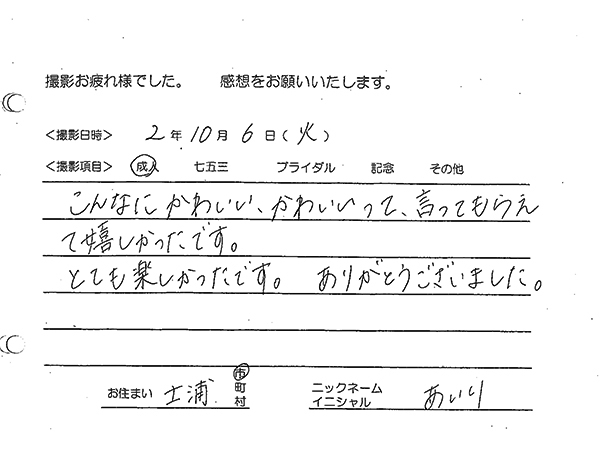 撮影お疲れ様でした。　感想をお願いいたします。
<撮影日時>　2年10月6日(火)
<撮影項目>　成人　七五三　ブライダル　記念　その他
こんなにかわいい、かわいいって、言ってもらえ
て嬉しかったです。
とても楽しかったです。　ありがとうございました。
お住まい　土浦　市町村　ニックネーム　イニシャル　あいり